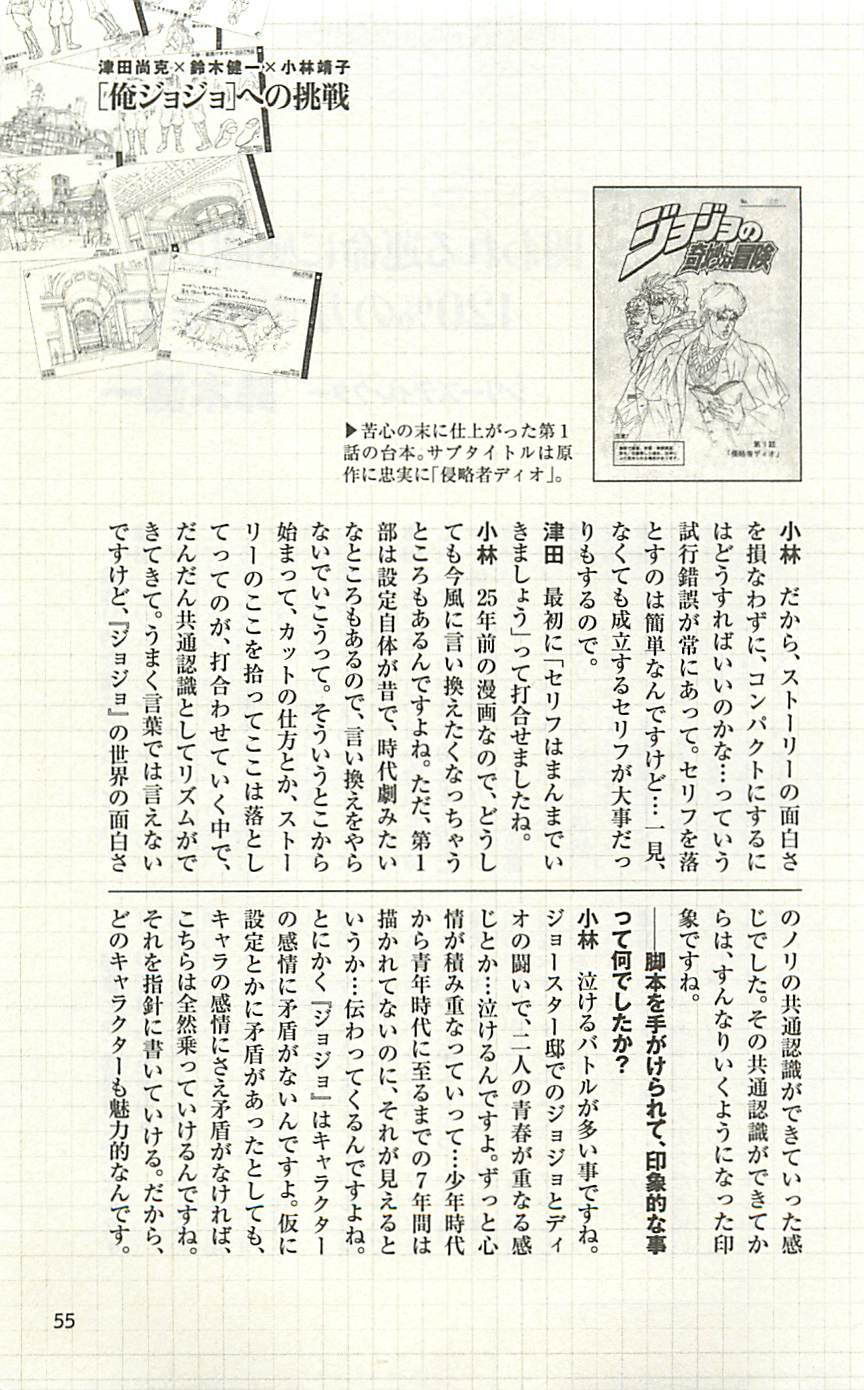 津田尚克×鈴木健一×小林靖子
[俺ジョジョ]への挑戦
ジョジョの
奇妙な冒険
第1話
「侵略者ディオ」
▶苦心の末に仕上がった第1
話の台本。サブタイトルは原
作に忠実に「侵略者ディオ」。
小林　だから、ストーリーの面白さ
を損なわずに、コンパクトにするに
はどうすればいいのかな…っていう
試行錯誤が常にあって。セリフを落
とすのは簡単なんですけど…一見、
なくても成立するセリフが大事だっ
りもするので。
津田　最初に「セリフはまんまでい
きましょう」って打合せましたね。
小林　25年前の漫画なので、どうし
ても今風に言い換えたくなっちゃう
ところもあるんですよね。ただ、第1
部は設定自体が昔で、時代劇みたい
なところもあるので、言い換えをやら
ないでいこうって。そういうとこから
始まって、カットの仕方とか、ストー
リーのここを拾ってここは落とし
てってのが、打合わせていく中で、
だんだん共通認識としてリズムがで
きてきて。うまく言葉では言えない
ですけど、『ジョジョ』の世界の面白さ
のノリの共通認識ができていった感
じでした。その共通認識ができてか
らは、すんなりいくようになった印
象ですね。
――脚本を手がけられて、印象的な事
って何でしたか？
小林　泣けるバトルが多い事ですね。
ジョースター邸でのジョジョとディ
オの闘いで、二人の青春が重なる感
じとか…泣けるんですよ。ずっと心
情が積み重なっていって…少年時代
から青年時代に至るまでの7年間は
描かれてないのに、それが見えると
いうか…伝わってくるんですよね。
とにかく『ジョジョ』はキャラクター
の感情に矛盾がないんですよ。仮に
設定とかに矛盾があったとしても、
キャラの感情にさえ矛盾がなければ、
こちらは全然乗っていけるんですね。
それを指針に書いていける。だから、
どのキャラクターも魅力的なんです。
55